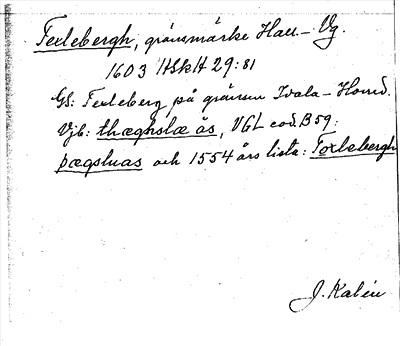 Texlebergh, gränsmärke Hall.–Vg.
1603 HSkH 29:81
GS: Texleberg på gränsen Tvåla–Horred.
Vjb: thæghslæ ås, VGL cod. B 59:
þægsluas och 1554 års lista: Toxlebergh
J. Kalén